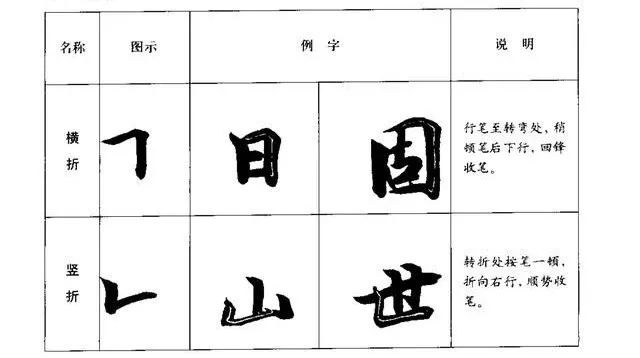 名称 图示 例字 说明
横折 日 固 行笔至转弯处，稍
顿笔后下行，回锋
收笔。
竖折 山 世 转折处按笔一顿，
折向右行，顺势收
笔。